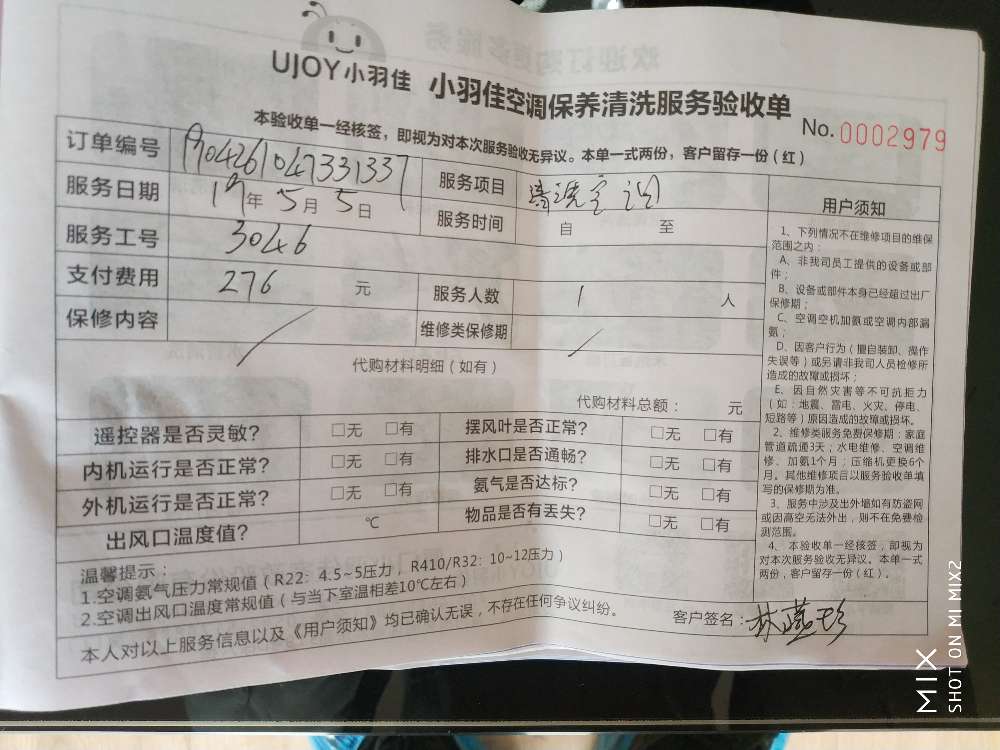 UJOY小羽佳 小羽佳空调保养清洗服务验收单
No.0002979
本验收单一经核签，即视为对本次服务验收无异议。本单一式两份，客户留存一份（红）
订单编号 1904261047331337 服务项目 清洗空调
服务日期 19年5月5日 服务时间 自 至
服务工号 3046
支付费用 276 元 服务人数 1 人
保修内容 / 维修类保修期 /
代购材料明细（如有）
代购材料总额： 元
遥控器是否灵敏？ □无 □有 摆风叶是否正常？ □无 □有
内机运行是否正常？ □无 □有 排水口是否通畅？ □无 □有
外机运行是否正常？ □无 □有 氨气是否达标？ □无 □有
出风口温度值？ ℃ 物品是否有丢失？ □无 □有
温馨提示：
1.空调氨气压力常规值（R22：4.5~5压力，R410/R32：10~12压力）
2.空调出风口温度常规值（与当下室温相差10℃左右）
本人对以上服务信息以及《用户须知》均已确认无误，不存在任何争议纠纷。
客户签名：林燕珍
用户须知
1、下列情况不在维修项目的维保
范围之内：
A、非我司员工提供的设备或部
件；
B、设备或部件本身已经超过出厂
保修期；
C、空调空机加氨或空调内部漏
氨；
D、因客户行为（擅自装卸、操作
失误等）或另请非我司人员检修所
造成的故障或损坏；
E、因自然灾害等不可抗拒力
（如：地震、雷电、火灾、停电、
短路等）原因造成的故障或损坏。
2、维修类服务免费保修期：家庭
管道疏通3天；水电维修、空调维
修、加氨1个月；压缩机更换6个
月。其他维修项目以服务验收单填
写的保修期为准。
3、服务中涉及出外墙如有防盗网
或因高空无法外出，则不在免费检
测范围。
4、本验收单一经核签，即视为
对本次服务验收无异议。本单一式
两份，客户留存一份（红）。
MIX
SHOT ON MI MIX2